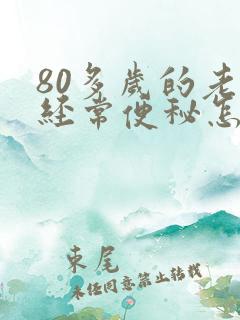 80多岁的老
经常便秘怎
東尾
未经同意禁止转载